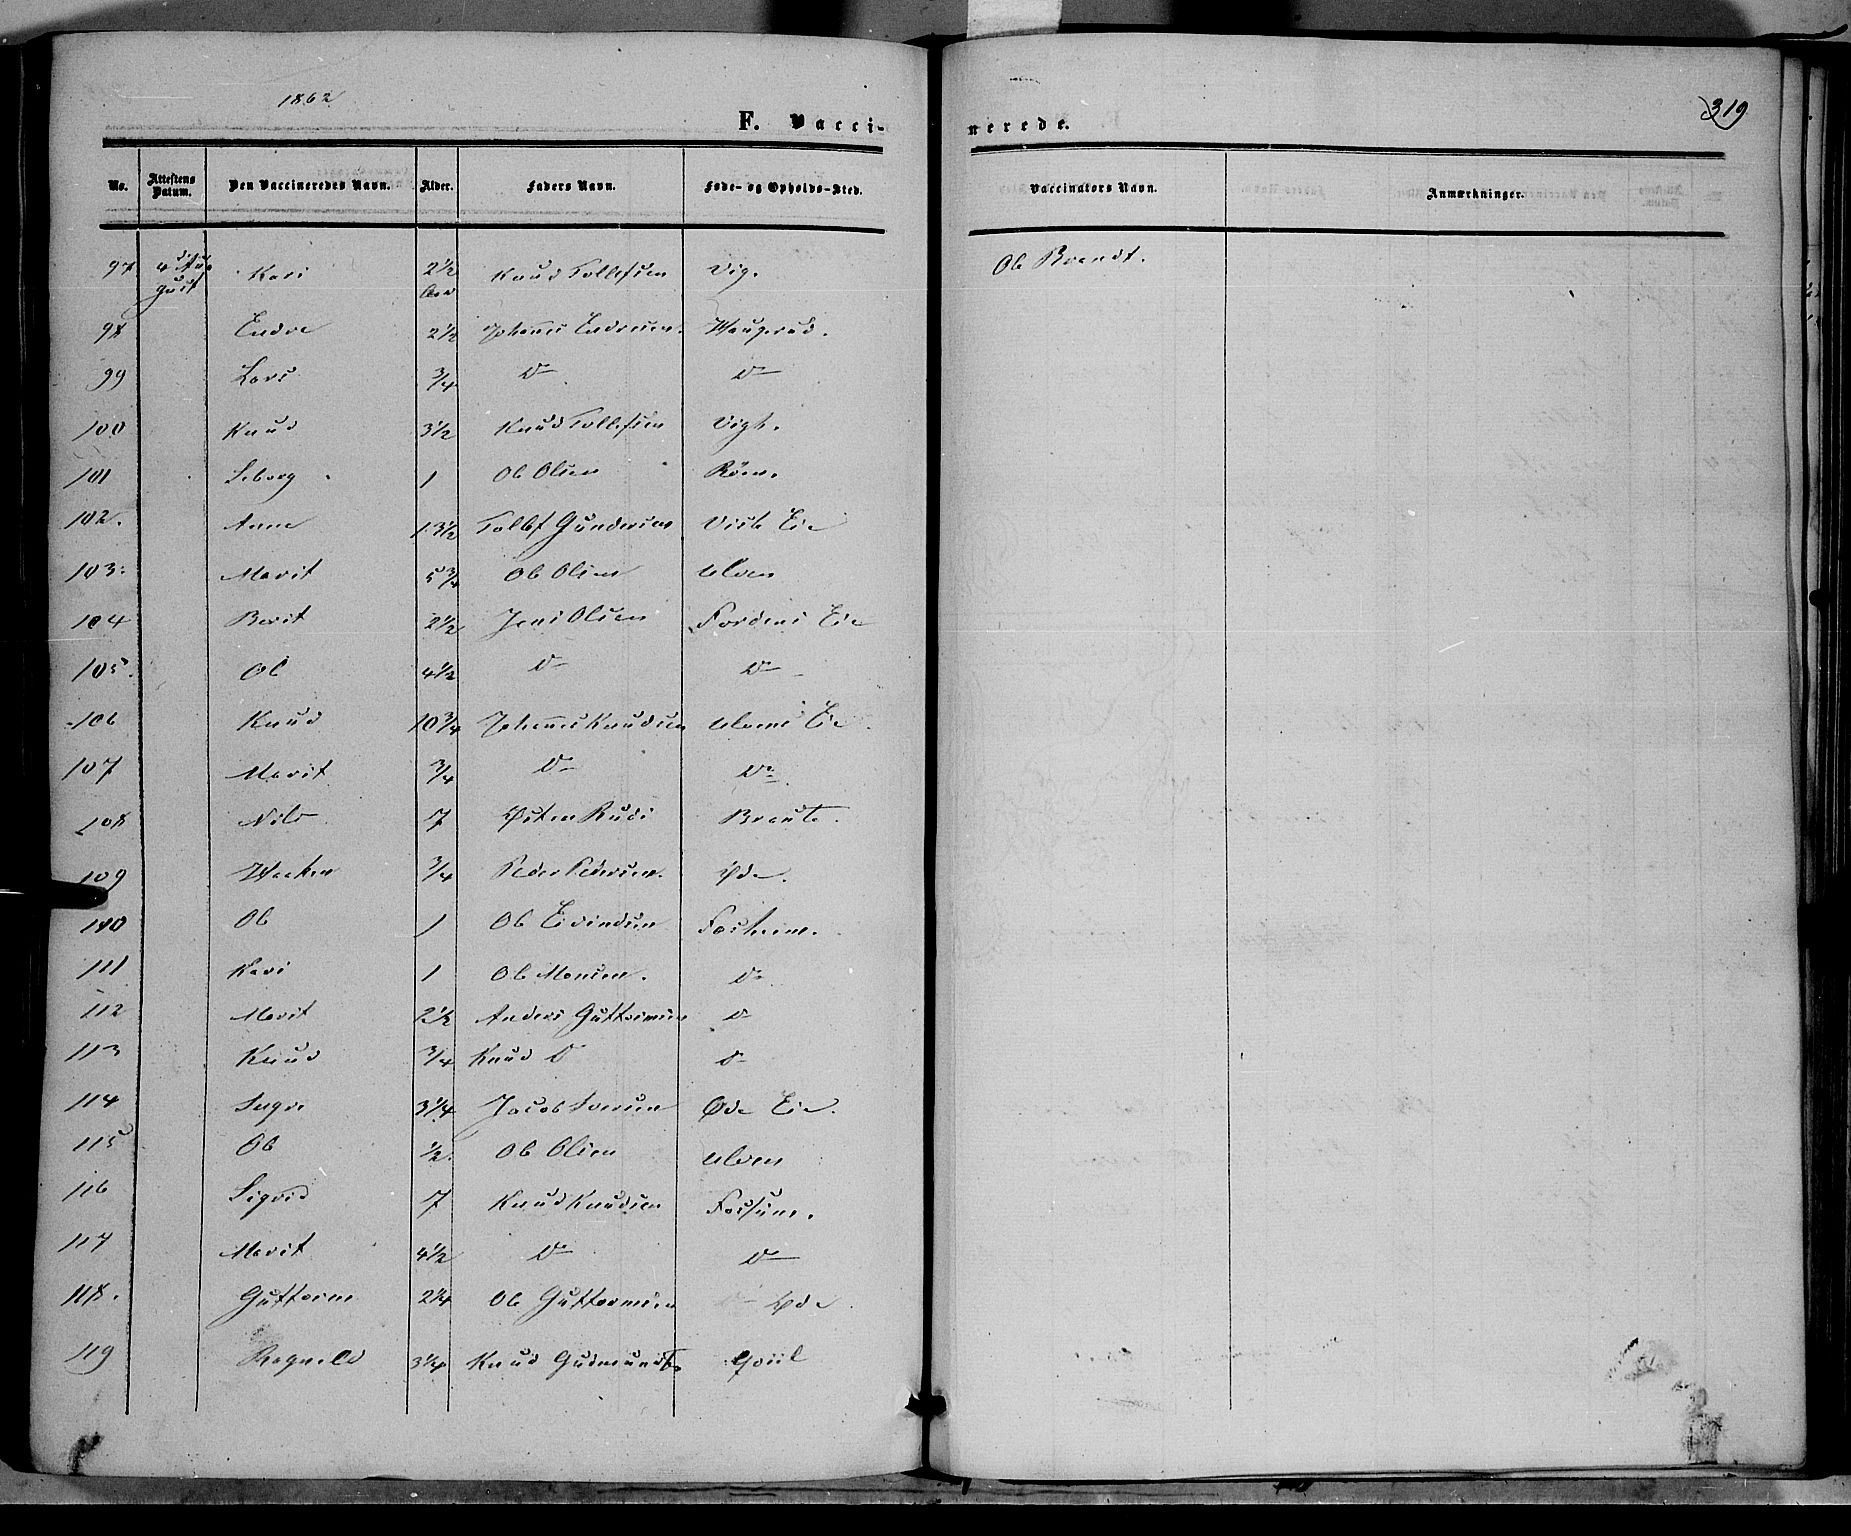 1862
F. Vacci-
nerede.
319
No. Attestens Datum. Den Vaccineredes Navn. Alder. Faders Navn. Føde- og Opholds-Sted. Vaccinators Navn. Anmærkninger.
97 4de Au- Kari 2½ Knud Tollefsen Vig. Ole Brandt.
gust
98 Endre 2½ Johannes Endresen. Haugrud.
99 Lars ¾ Do Do
100 Knud 3½ Knud Tollefsen Vigh.
101 Seborg 1 Ole Olsen Röen.
102. Anne 13½ Tollef Gundersen Viste Eie
103. Marit 5¾ Ole Olsen Ulven
104 Berit 2½ Jens Olsen Fordens Eie
105. Ole 4½ Do Do
106 Knud 10¾ Johannes Knudsen Ulvens Eie
107 Marit ¾ Do Do
108 Nils 7 Østen Rudi Braute.
109 Haaken ¾ Peder Pedersen. Øde.
110 Ole 1 Ole Eivindsen Fosheim.
111 Kari 1 Ole Monsen. Do
112 Marit 2½ Anders Guttormsen Do
113 Knud ¾ Knud Do Do
114 3¼ Jacob Iversen Øde Eie.
115 Ole ½. Ole Olsen Ulven
116 Sigrid 7 Knud Knudsen Fossum.
117 Marit 4½ Do Do
118. Guttorm 2¼ Ole Guttormsen Øde
119 Ragnild 3¼ Knud Gudmunds.